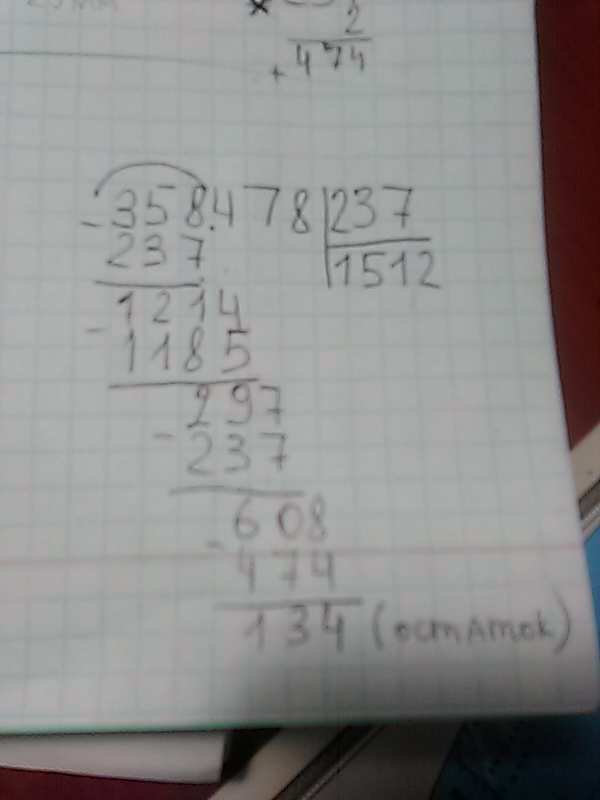 × 2
+ 474
- 358.478 | 237
237 | 1512
1214
- 1185
297
- 237
608
- 474
134 (остаток)